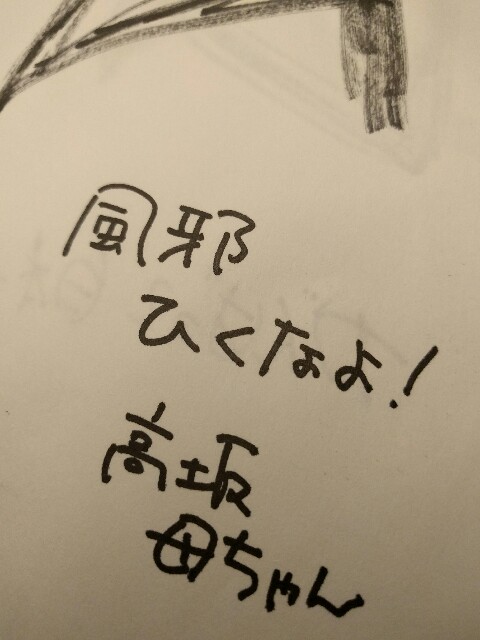 風邪
ひくなよ!
高坂
母ちゃん